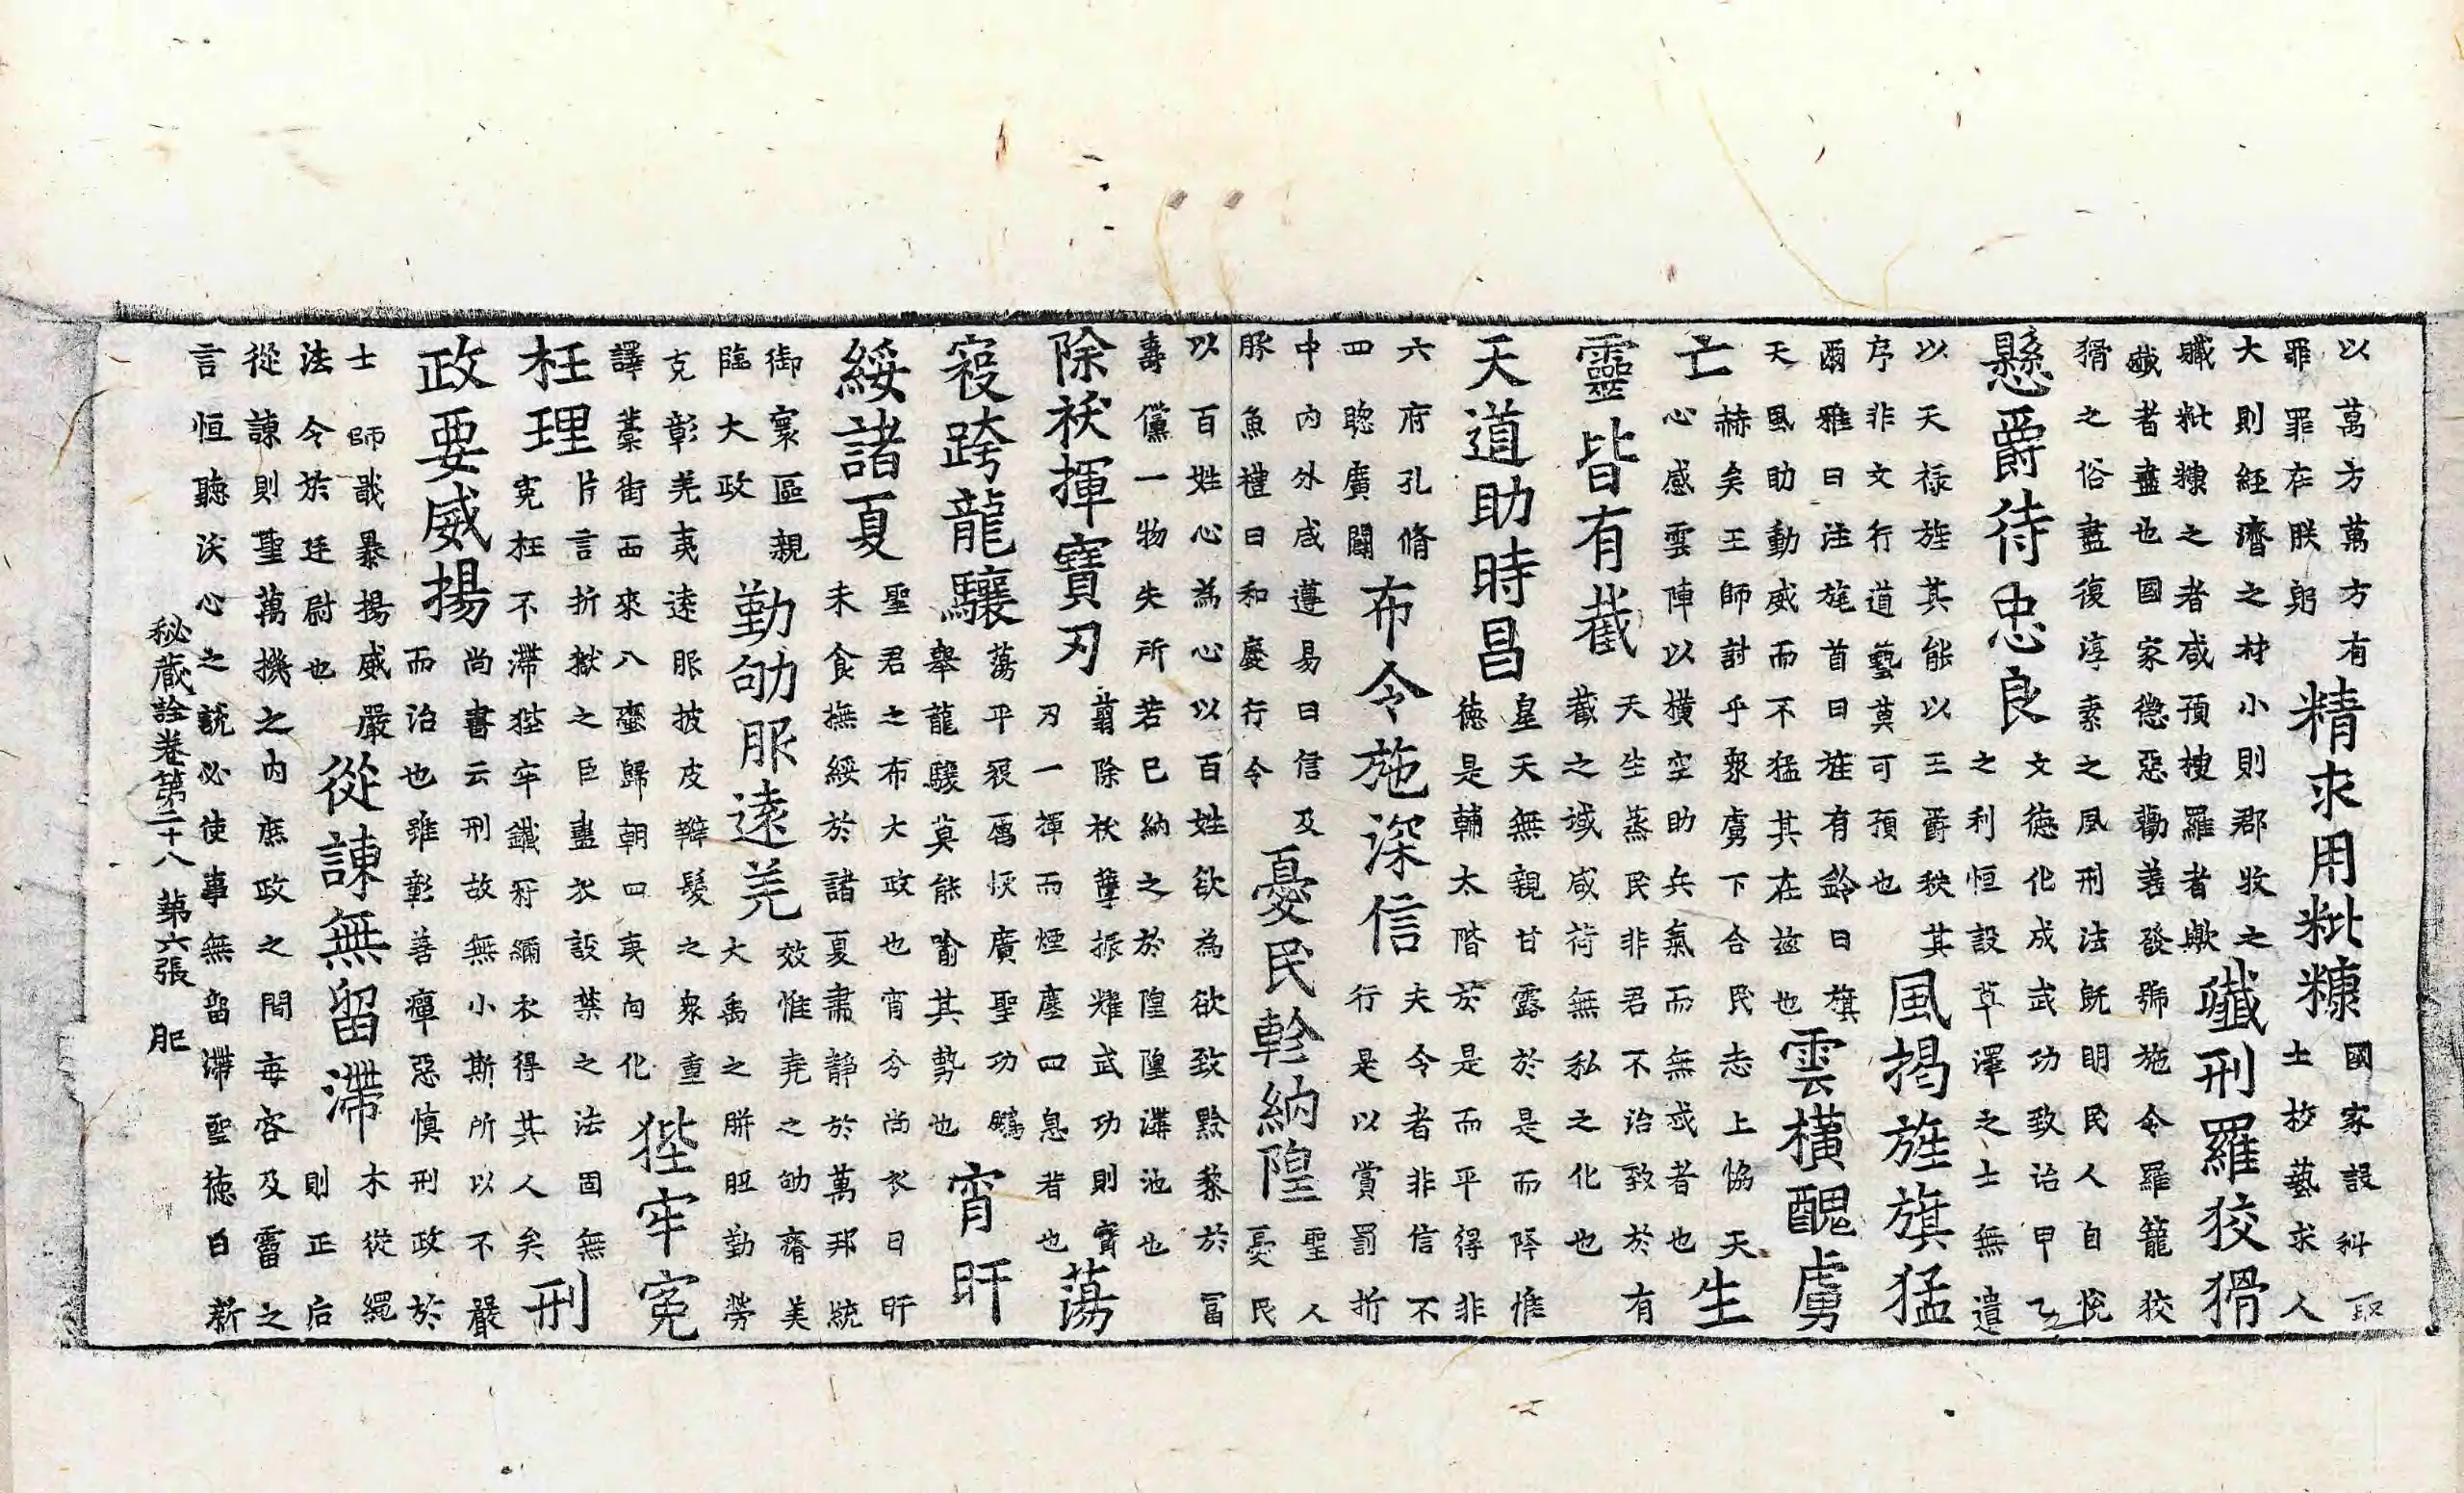 以萬方萬方有
罪罪在朕躬
精求用粃糠
國家設科取
士校藝求人
大則經濟之材小則郡牧之
職粃糠之者咸預搜羅者歟
殲刑羅狡猾
殲者盡也國家懲惡勸善發號施令羅籠狡
猾之俗盡復淳素之風刑法既明民人自悅
懸爵待忠良
文德化成武功致治甲乙
之利恒設草澤之士無遺
以天祿旌其能以王爵秩其
序非文行道藝莫可預也
風揭旌旗猛
爾雅曰注旄首曰旌有鈴曰旗
天風助動威而不猛其在茲也
雲橫醜虜
亡
赫矣王師討乎衆虜下合民志上協天
心感雲陣以橫空助兵氣而無忒者也
生
靈皆有截
天生蒸民非君不治致於有
截之域咸荷無私之化也
天道助時昌
皇天無親甘露於是而降惟
德是輔太階於是而平得非
六府孔脩
四聰廣闢
布令施深信
夫令者非信不
行是以賞罰折
中內外咸遵易曰信及
豚魚禮曰和慶行令
憂民軫納隍
聖人
憂民
以百姓心為心以百姓欲為欲致黔黎於冨
壽儻一物失所若已納之於隍隍溝池也
除祅揮寶刃
翦除祅孽振耀武功則寶
刃一揮而煙塵四息者也
蕩
祲跨龍驤
蕩平祲厲恢廣聖功鵰
舉龍驤莫能喻其勢也
宵旰
綏諸夏
聖君之布大政也宵兮尚衣日旰
未食撫綏於諸夏肅靜於萬邦統
御寰區親
臨大政
勤劬服遠羌
效惟堯之劬瘠美
大禹之胼胝勤勞
克彰羌夷遠服披皮辮髮之衆重
譯藁街而來八蠻歸朝四夷向化
狴牢冤
枉理
片言折獄之臣畫衣設禁之法固無
冤枉不滯狴牢鐵豸繡衣得其人矣
刑
政要威揚
尚書云刑故無小斯所以不嚴
而治也雖彰善癉惡慎刑政於
士師戢暴揚威嚴
法令於廷尉也
從諫無留滯
木從繩
則正后
從諫則聖萬機之內庶政之間每容及霤之
言恒聽沃心之說必使事無留滯聖德日新
秘藏詮卷第二十八 第六張 肥